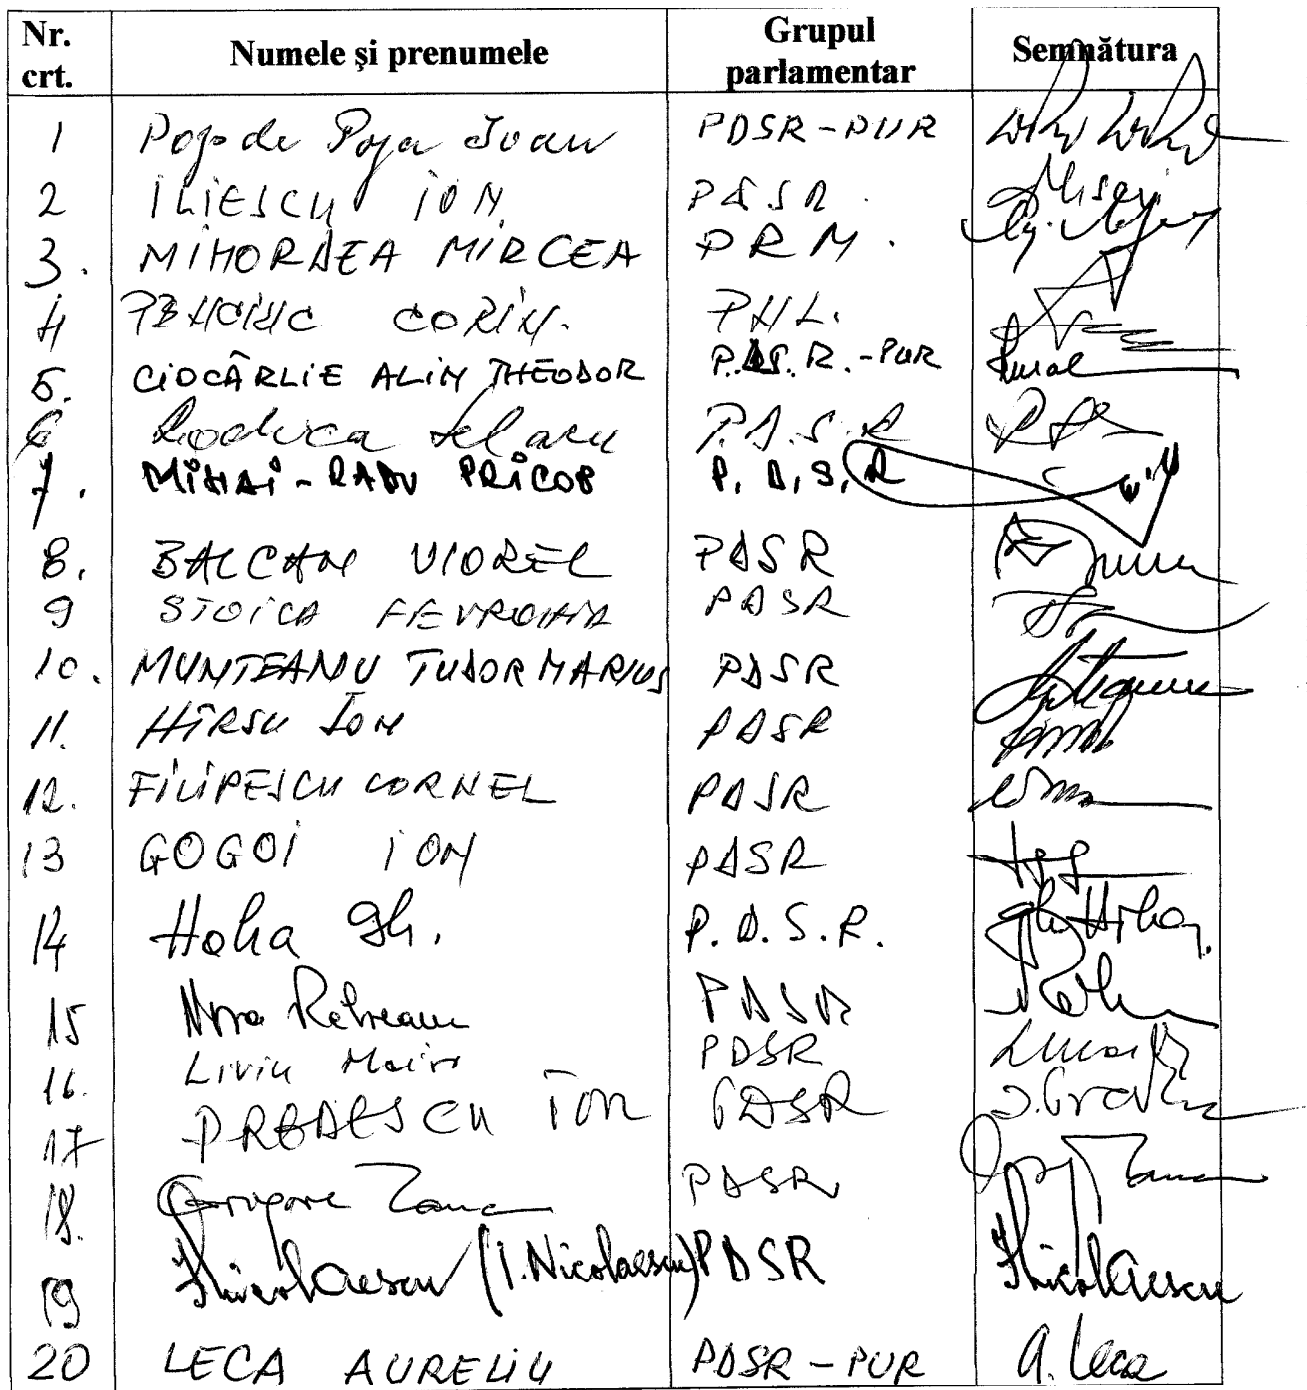 Nr. crt. Numele și prenumele Grupul parlamentar Semnătura
1 Pop de Popa Ioan PDSR-PUR
2 ILIESCU ION PDSR.
3. MIHORDEA MIRCEA PRM.
4 PENCIUC CORIN. PNL.
5. CIOCÂRLIE ALIN THEODOR P.D.S.R.-PUR
6 Rodica P.D.S.R
7. MIHAI-RADU PRICOP P.D.S.R
8. BALCAN VIOREL PDSR
9 STOICA FEVRONIA PDSR
10. MUNTEANU TUDOR MARIUS PDSR
11. HÎRSU ION PDSR
12. FILIPESCU CORNEL PDSR
13 GOGOI ION PDSR
14 Hoha Gh. P.D.S.R.
15 Nora Rebreanu PDSR
16. Liviu Maior PDSR
17 PREDESCU ION PDSR
18. Grigore Zanc PDSR
19 INicolaescu (I. Nicolaescu) PDSR INicolaescu
20 LECA AURELIU PDSR-PUR A. Leca